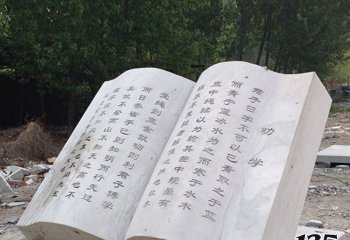 劝学
君子曰学不可以已青取之于蓝
而青于蓝冰水为之而寒于水木
直中绳以为轮其曲中规虽有
受绳则直金就砺则利君子博学
而日参省乎己则知明而行无过
故不登高山不知天之高也不
135